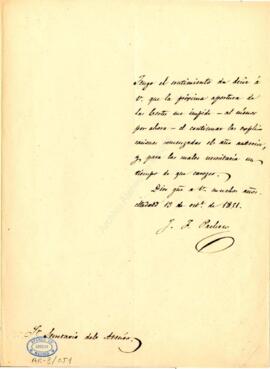 Tengo el sentimiento de decir á
V. que la próxima apertura de
las Cortes me impide - al menos
por ahora - el continuar las esplica-
ciones comenzadas el año anterior,
y para las cuales necesitaria un
tiempo de que carezco.
Dios gue á V. muchos años.
Madrid 13 de oct.e de 1851.
J. F. Pacheco
Sr. Secretario del Ateneo.